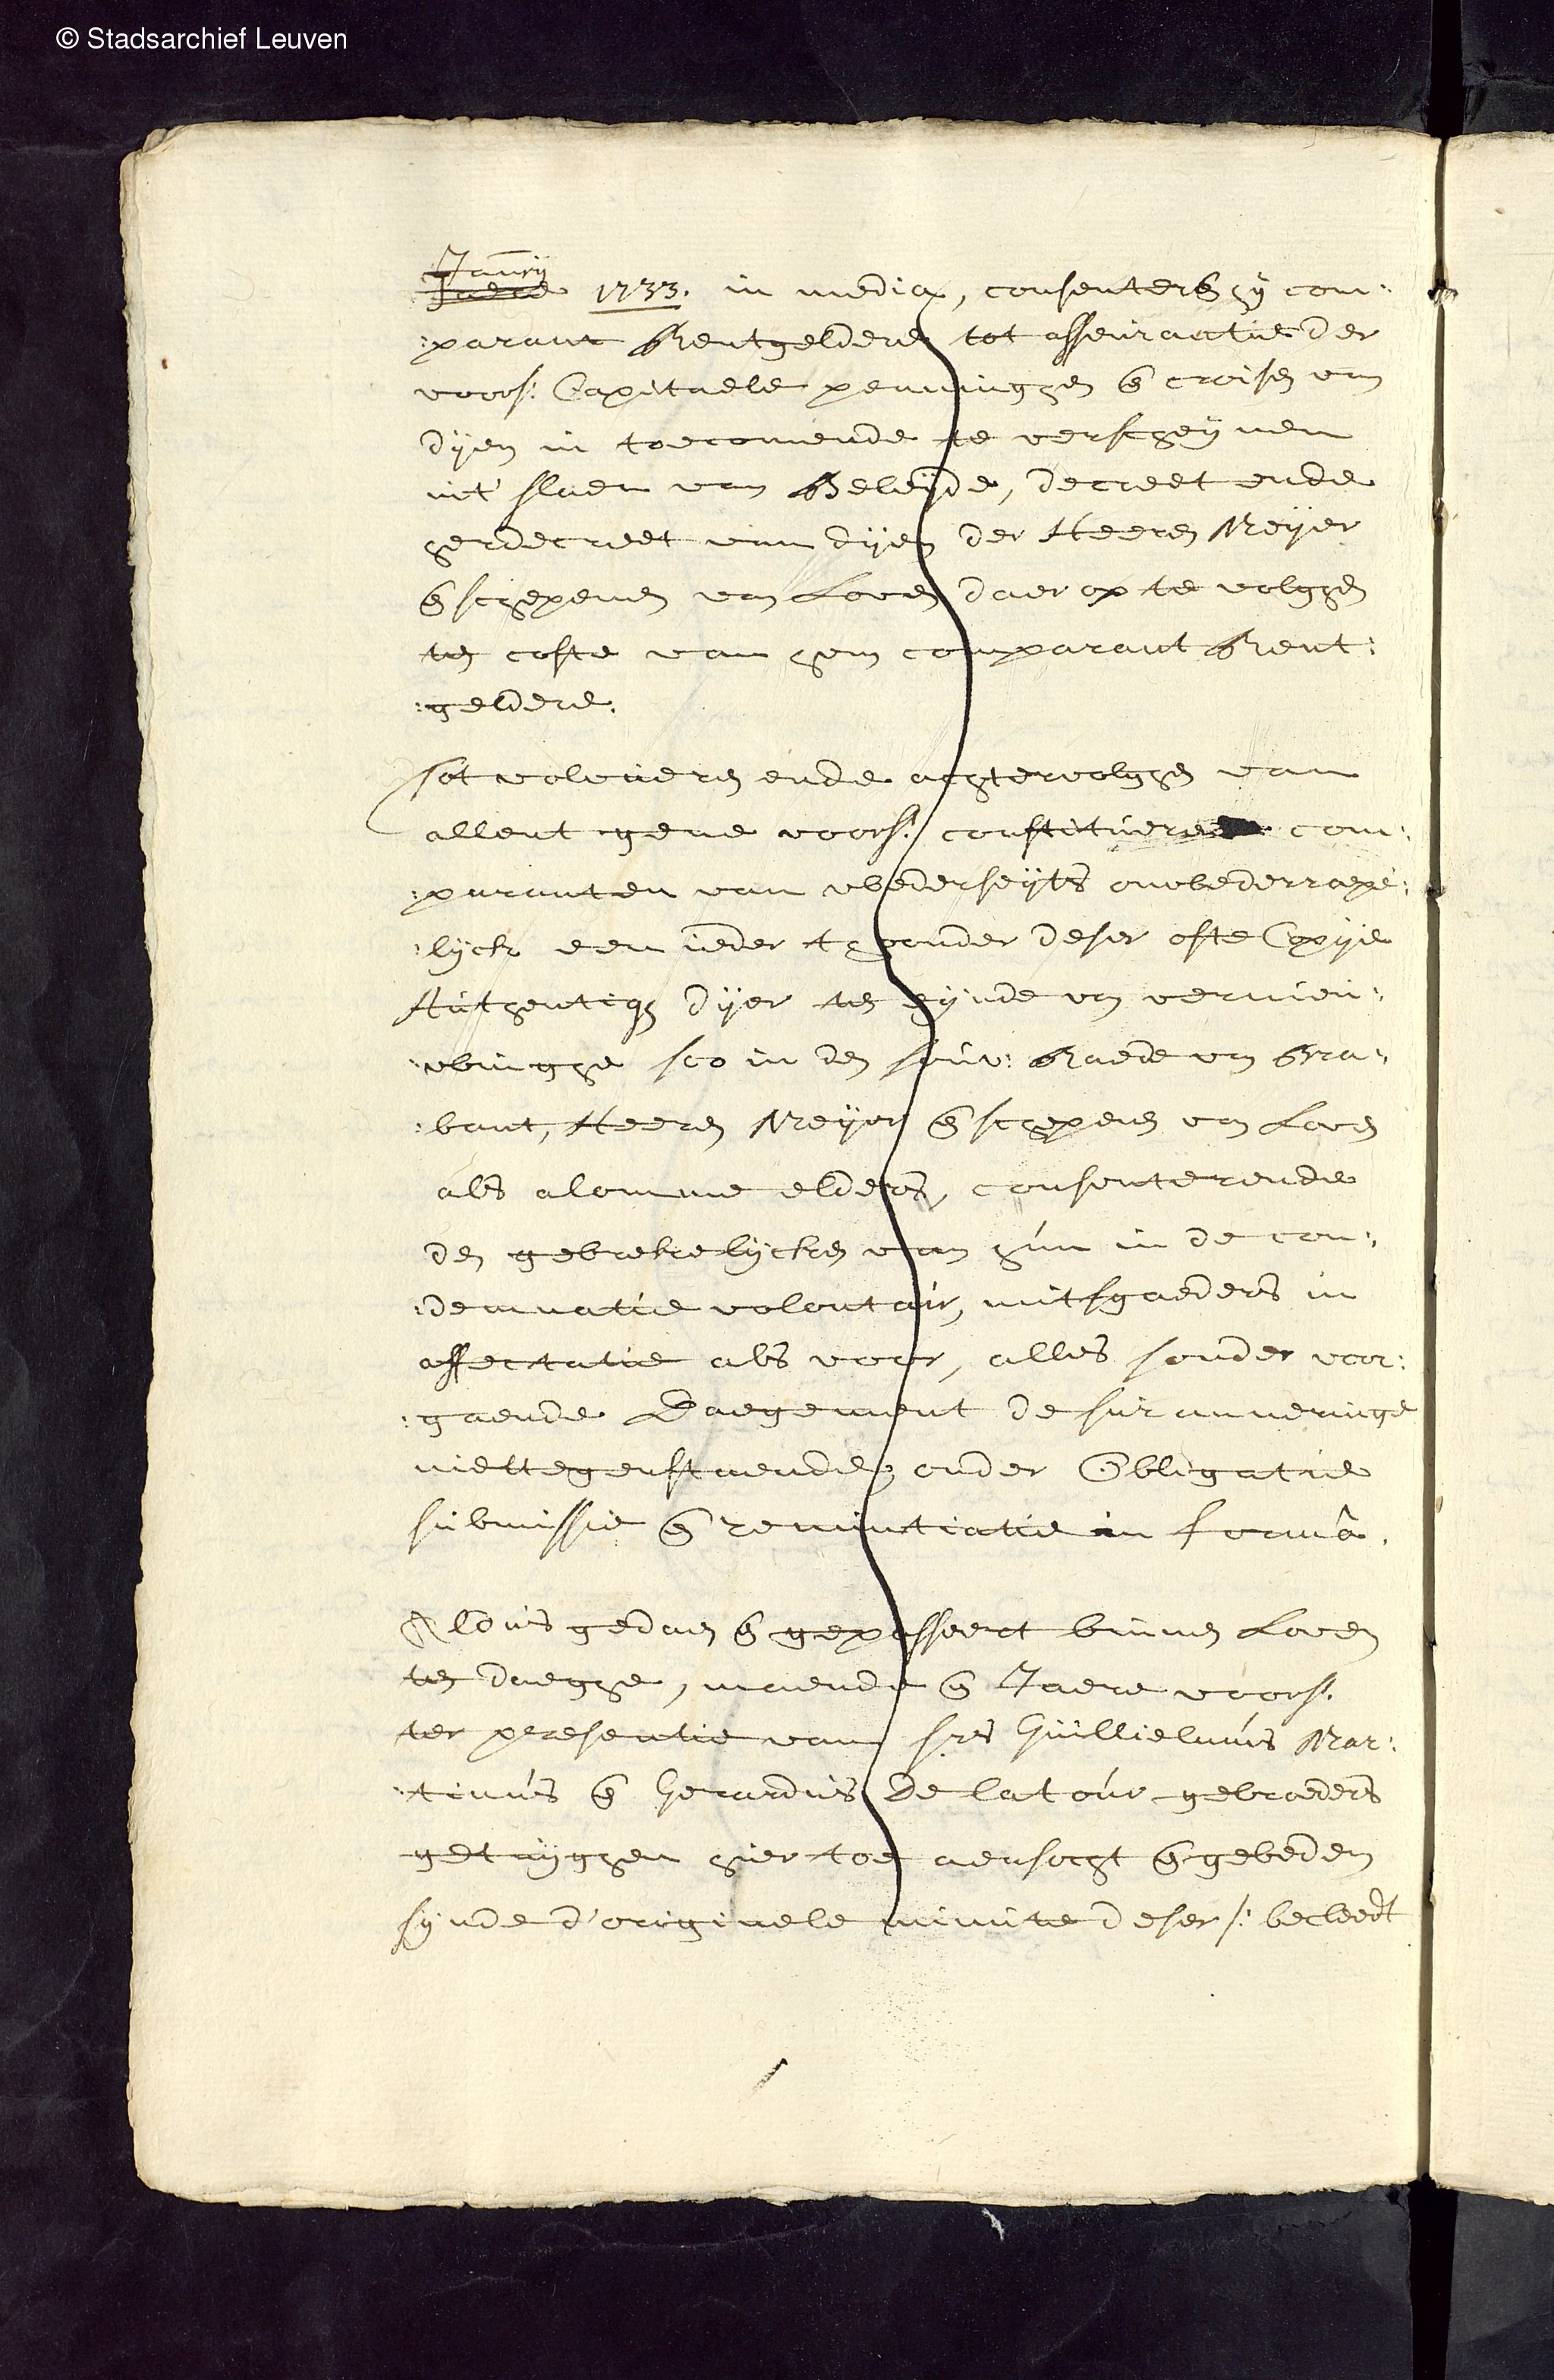 © Stadsarchief Leuven
Janrij
Jaere 1733. in media, consenterende hij com:
:parant Rentgeldere tot asseurantie der
voors: Capitaele penninghen en croisen van
dijen in toecomende te verscheijnen
int slaen van Beleijde, decreet ende
herdecreet van dijen der Heeren Meijer
en schepenen van Loven daer op te volghen
ten coste van hem comparant Rent:
:geldere.
Tot volcomen ende achtervolghen van
allent gene voors: constitueren com:
:paranten van wederseijts onwederroepe:
:lijck een ieder thoonder deser ofte Copije
Authenticq dijer ten eijnde van vernieu:
:winghe soo in den souv: Raede van Bra:
:bant, Heeren Meijer en schepenen van Loven
als alomme elders, consenterende
den gebrekelijcken van hun in de con:
:demnatie volontair, mitsgaeders in
affectatie als voor, alles sonder voor:
:gaende Daegement de suranneringe
niettegenstaende, onder Obligatie
submissie en renuntiatie in formâ.
Aldus gedaen en gepasseert binnen Loven
ten daeghe, maende en Jaere voors:
ter presentie van srs Guillielmus Mar:
:tinus en Gerardus De latour gebroeders
getuijghen hier toe aensocht en gebeden
sijnde d'originele minute deser /: becleedt